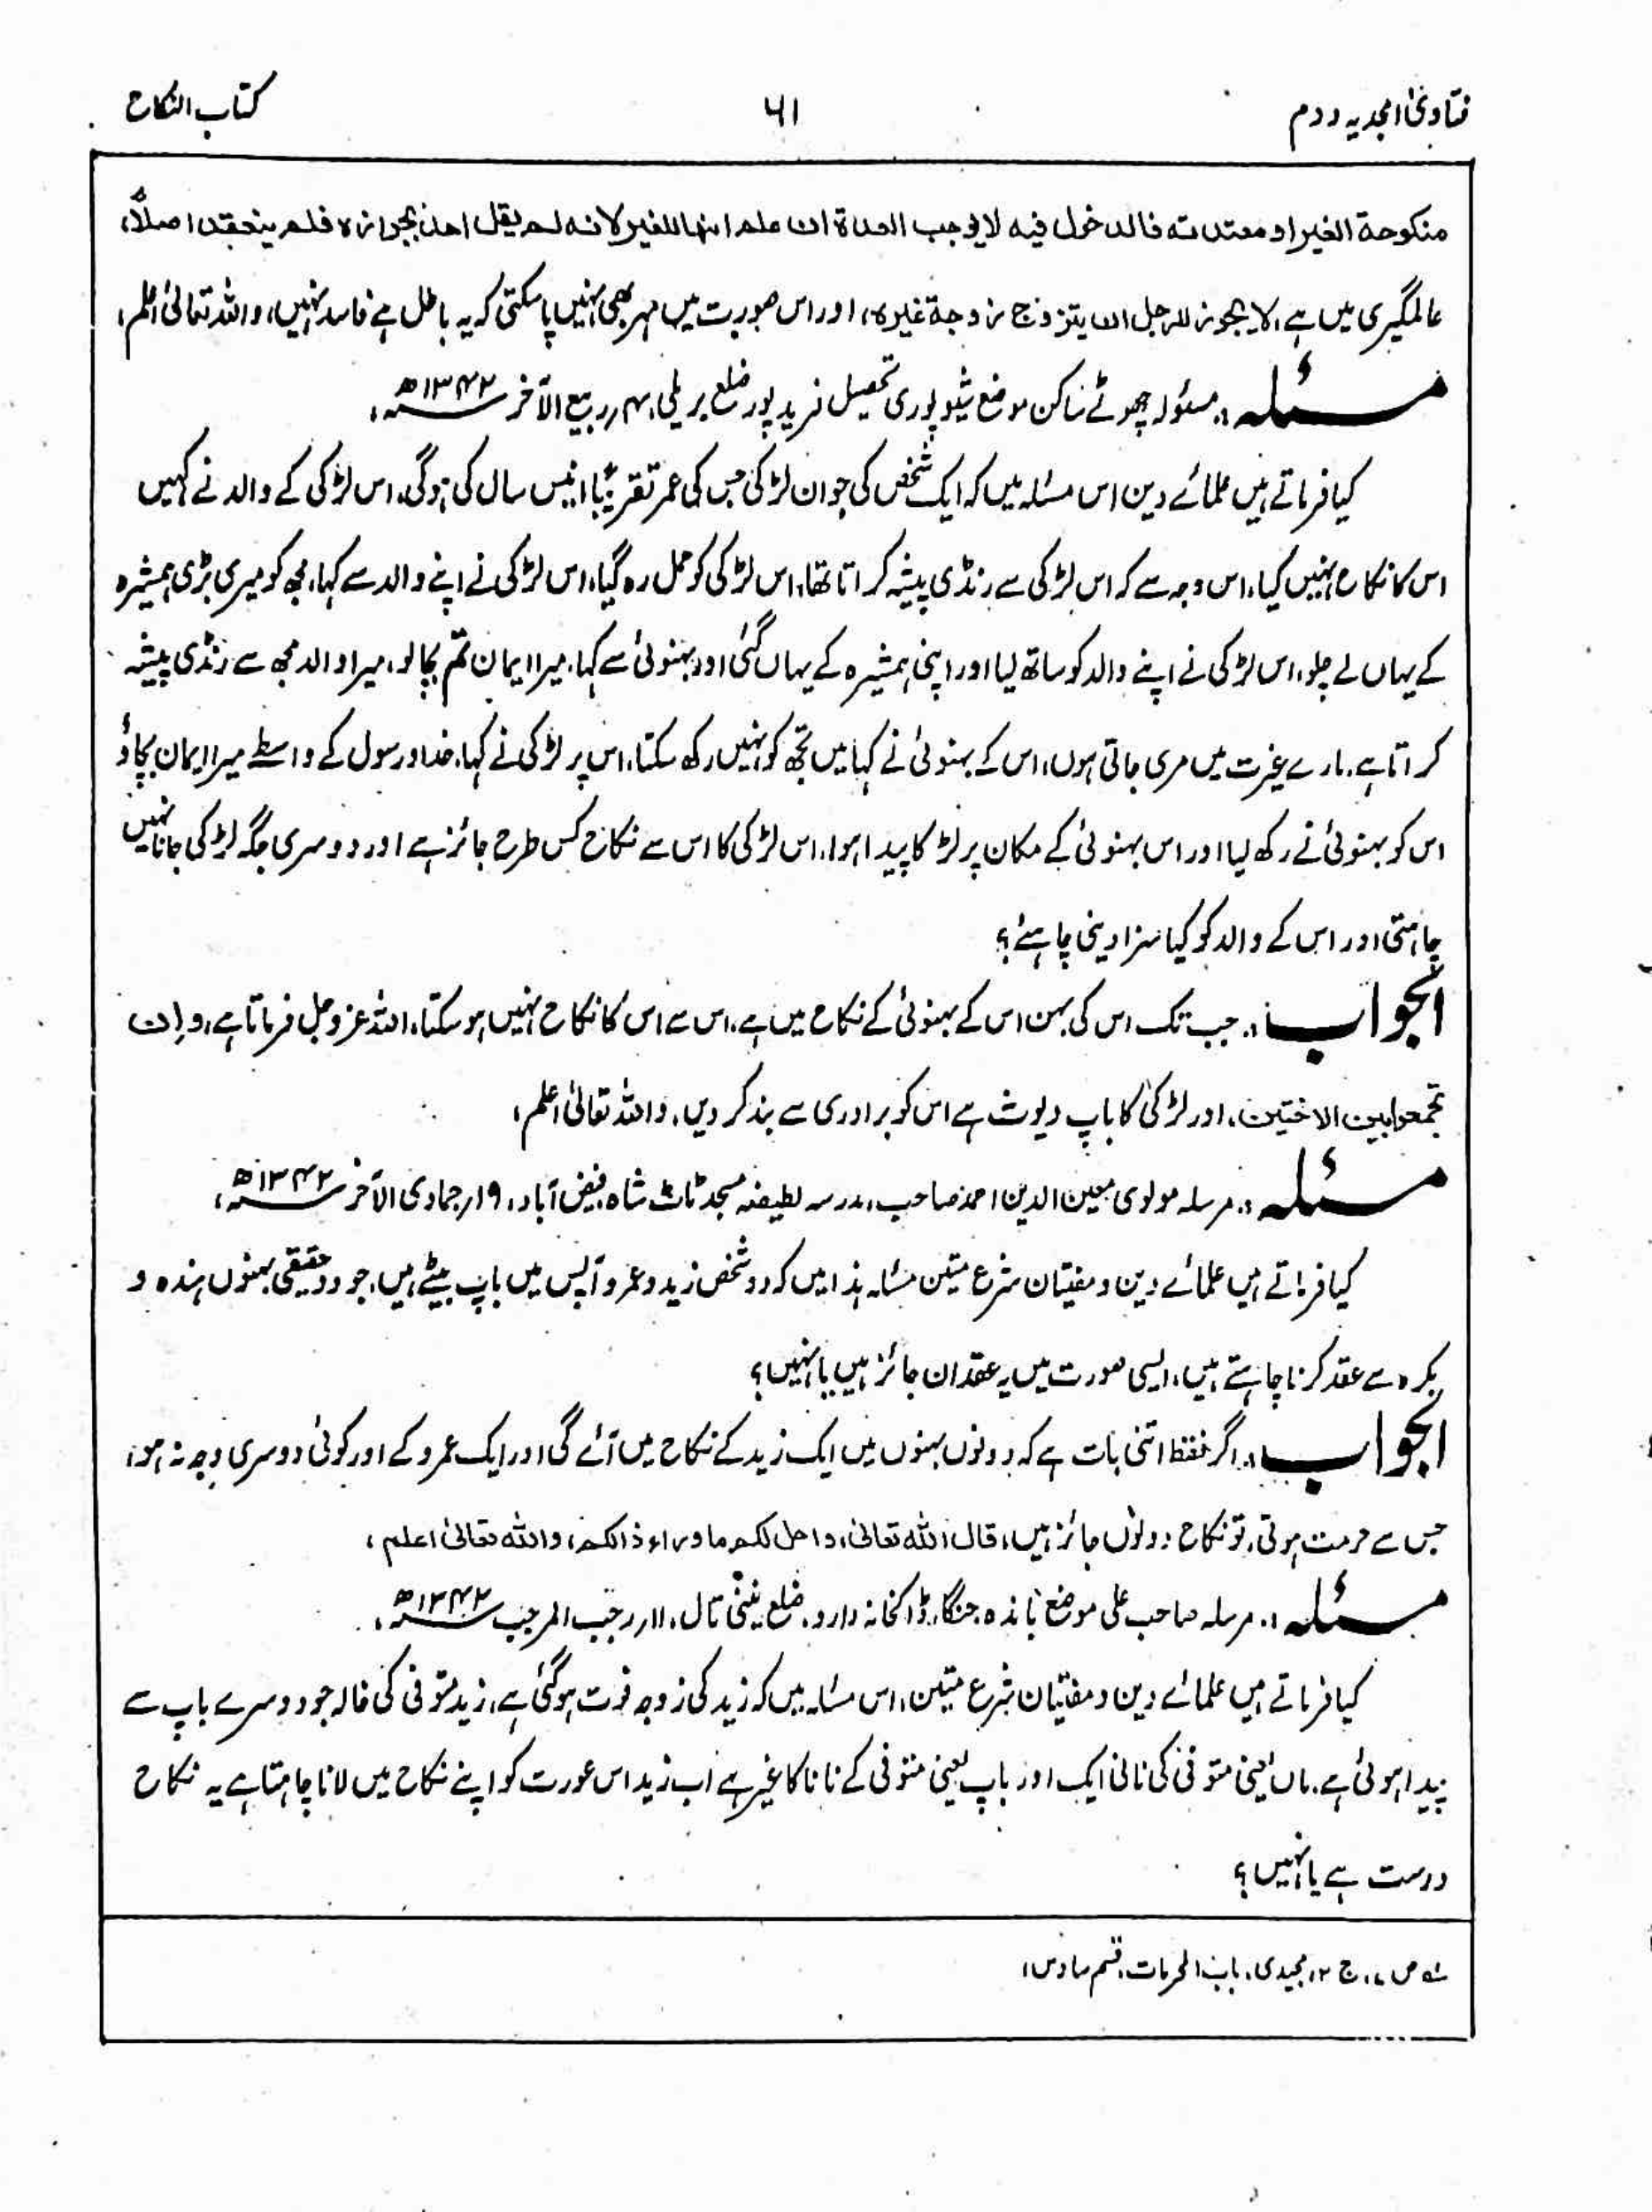 فتاویٰ امجدیہ دوم
۶۱
کتاب النکاح
منکوحة الغیر او معتدتہ فالدخول فیہ لایوجب العدة ان علم انہا للغیر لانہ لم یقل احد بجوازہ فلم ینعقد اصلاً،
عالمگیری میں ہے، لا یجوز للرجل ان یتزوج زوجة غیرہ، اور اس صورت میں مہر بھی نہیں پاسکتی کہ یہ باطل ہے فاسد نہیں، واللہ تعالیٰ اعلم،
مسئلہ :۔ مسئولہ چھوٹے ساکن موضع شیوپوری تحصیل فرید پور ضلع بریلی، ۴؍ ربیع الآخر ۱۳۴۲ھ،
کیا فرماتے ہیں علمائے دین اس مسئلہ میں کہ ایک شخص کی جوان لڑکی جس کی عمر تقریباً انیس سال کی ہوگی، اس لڑکی کے والد نے کہیں
اس کا نکاح نہیں کیا، اس وجہ سے کہ اس لڑکی سے رنڈی پیشہ کراتا تھا، اس لڑکی کو حمل رہ گیا، اس لڑکی نے اپنے والد سے کہا، مجھ کو میری بڑی ہمشیرہ
کے یہاں لے چلو، اس لڑکی نے اپنے والد کو ساتھ لیا اور اپنی ہمشیرہ کے یہاں گئی اور بہنوئی سے کہا، میرا ایمان تم بچالو، میرا والد مجھ سے رنڈی پیشہ
کراتا ہے، مارے غیرت میں مری جاتی ہوں، اس کے بہنوئی نے کہا میں تجھ کو نہیں رکھ سکتا، اس پر لڑکی نے کہا، خدا و رسول کے واسطے میرا ایمان بچاؤ
اس کو بہنوئی نے رکھ لیا اور اس بہنوئی کے مکان پر لڑکا پیدا ہوا، اس لڑکی کا اس سے نکاح کس طرح جائز ہے اور دوسری جگہ لڑکی جانا نہیں
چاہتی اور اس کے والد کو کیا سزا دینی چاہئے؟
الجواب :۔ جب تک اس کی بہن اس کے بہنوئی کے نکاح میں ہے، اس سے اس کا نکاح نہیں ہوسکتا، اللہ عزوجل فرماتا ہے، و ان
تجمعوا بین الاختین، اور لڑکی کا باپ دیوث ہے اس کو برادری سے بند کر دیں، واللہ تعالیٰ اعلم،
مسئلہ :۔ مرسلہ مولوی معین الدین احمد صاحب، مدرسہ لطیفیہ مسجد ٹاٹ شاہ، فیض آباد، ۱۹؍ جمادی الآخر ۱۳۴۲ھ،
کیا فرماتے ہیں علمائے دین و مفتیان شرع متین مسئلہ ہذا میں کہ دو شخص زید و عمرو آپس میں باپ بیٹے ہیں، جو دو حقیقی بہنوں ہندہ و
بکرہ سے عقد کرنا چاہتے ہیں، ایسی صورت میں یہ عقدان جائز ہیں یا نہیں؟
الجواب :۔ اگر فقط اتنی بات ہے کہ دونوں بہنوں میں ایک زید کے نکاح میں آئے گی اور ایک عمرو کے اور کوئی دوسری وجہ نہ ہو،
جس سے حرمت ہوتی، تو نکاح دونوں جائز ہیں، قال اللہ تعالیٰ، واحل لکم ماوراء ذالکم، واللہ تعالیٰ اعلم،
مسئلہ :۔ مرسلہ صاحب علی موضع باندہ جنگا، ڈاکخانہ دارو، ضلع نینی تال، ۱۱؍ رجب المرجب ۱۳۴۲ھ،
کیا فرماتے ہیں علمائے دین و مفتیان شرع متین، اس مسئلہ میں کہ زید کی زوجہ فوت ہوگئی ہے، زید متوفی کی خالہ جو دوسرے باپ سے
پیدا ہوئی ہے، ماں یعنی متوفی کی نانی ایک اور باپ یعنی متوفی کے نانا کا غیر ہے اب زید اس عورت کو اپنے نکاح میں لانا چاہتا ہے یہ نکاح
درست ہے یا نہیں؟
لہ ص ۷، ج ۲، مجیدی، باب المحرمات، قسم سادس،